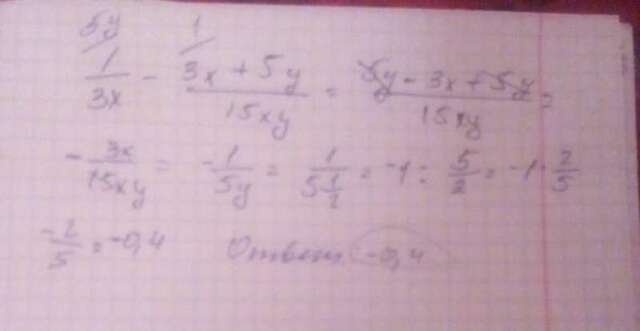 5y 1
1/3x - (3x + 5y)/15xy = (5y - 3x + 5y)/15xy =
- 3x/15xy = - 1/5y = 1/(5 1/2) = -1 : 5/2 = -1 · 2/5
-2/5 = -0,4 Ответ: -0,4